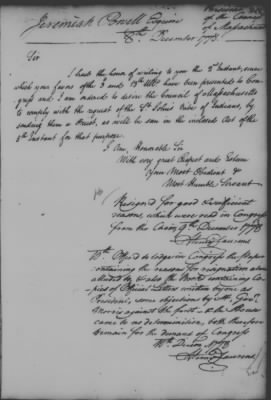 Jeremiah Powell Esquire
President
of the Council
of Massachusetts
8th December 1778
Sir
I had the honor of writing to you the 2d Instant, since
which your favors of the 3 and 13th Ulto have been presented to Con-
gress and I am ordered to desire the Council of Massachusetts
to comply with the request of the St Johns Tribe of Indians, by
sending them a Priest, as will be seen in the inclosed Act of the
5th Instant for that purpose.
I am, Honorable Sir
With very great Respect and Esteem
Your Most Obedient &
Most Humble Servant
Resigned for good & sufficient
reasons, which were read in Congress
from the Chair 9th December 1778
Henry Laurens
10th Offer'd to lodge in Congress the Paper
containing the reasons for resignation above
alluded to, & also the Books containing Co-
pies of Official Letters written by me as
President, some objections by Mr. Gouv
Morris against the first & the House
came to no determination, both therefore
remain for the demand of Congress
10th Decem 1778
Henry Laurens